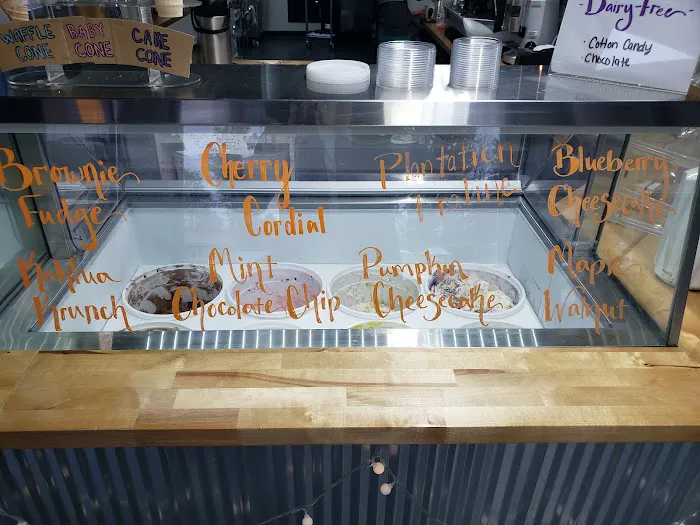 WAFFLE CONE
BABY CONE
CAKE CONE
Dairy-free
· Cotton Candy
· Chocolate
Brownie
Fudge
Cherry
Cordial
Plantation
Praline
Blueberry
Cheesecake
Kahlua
Krunch
Mint
Chocolate Chip
Pumpkin
Cheesecake
Maple
Walnut